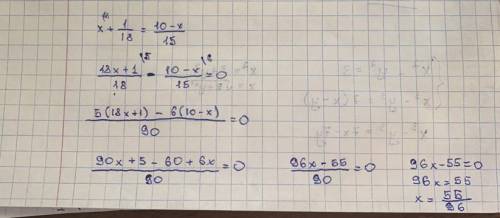 x + 1/18 = 10-x/15
18x+1/18 - 10-x/15 = 0
5(18x+1) - 6(10-x)/90 = 0
90x+5-60+6x/90 = 0
96x-55/90 = 0
96x-55=0
96x=55
x = 55/96